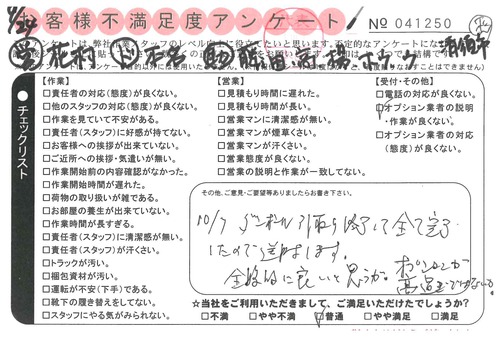 お客様不満足度アンケート
No 041250
【作業】
□責任者の対応(態度)が良くない。
□他のスタッフの対応(態度)が良くない。
□作業を見ていて不安がある。
□責任者(スタッフ)に好感が持てない。
□お客様への挨拶が出来ていない。
□ご近所への挨拶・気遣いが無い。
□作業開始前の内容確認がなかった。
□作業開始時間が遅れた。
□荷物の取り扱いが雑である。
□お部屋の養生が出来ていない。
□作業時間が長すぎる。
□責任者(スタッフ)に清潔感が無い。
□責任者(スタッフ)が汗くさい。
□トラックが汚い。
□梱包資材が汚い。
□運転が不安(下手)である。
□靴下の履き替えをしてない。
□スタッフにやる気がみられない。
【営業】
□見積もり時間に遅れた。
□見積もり時間が長い。
□営業マンに清潔感が無い。
□営業マンが煙草くさい。
□営業マンが汗くさい。
□営業態度が良くない。
□営業の説明と作業が一致してない。
【受付・その他】
□電話の対応が良くない。
オプション業者の説明
・作業が良くない。
□オプション業者の対応
(態度)が良くない。
チェックリスト
その他、ご意見・ご要望等ありましたらお書き下さい。
10/7 ダンボール引取り終了して全て完了
したので送ります。
全般的に良いと思うが、オプションが
☆当社をご利用いただきまして、ご満足いただけたでしょうか?
□不満 □やや不満 普通 □やや満足 □満足